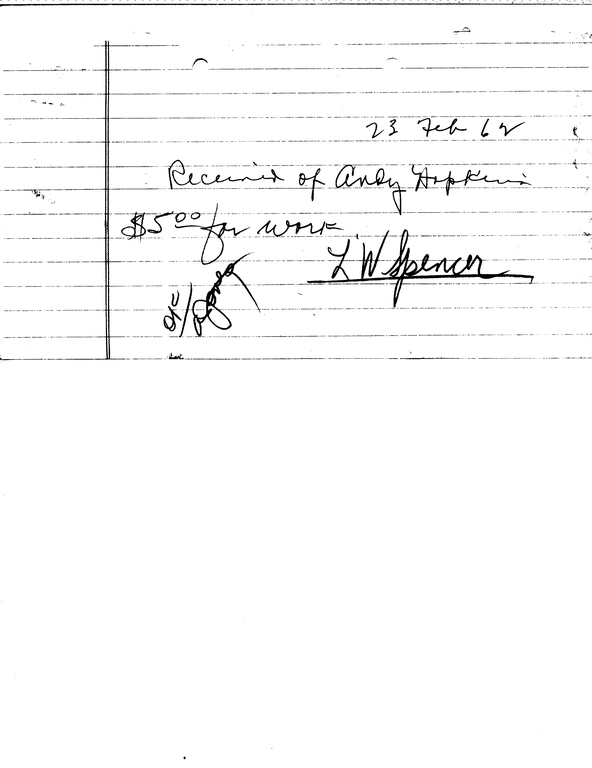 23 Feb 62
Received of Andy Hopkins
$5.00 for work.
L W Spencer
OK/